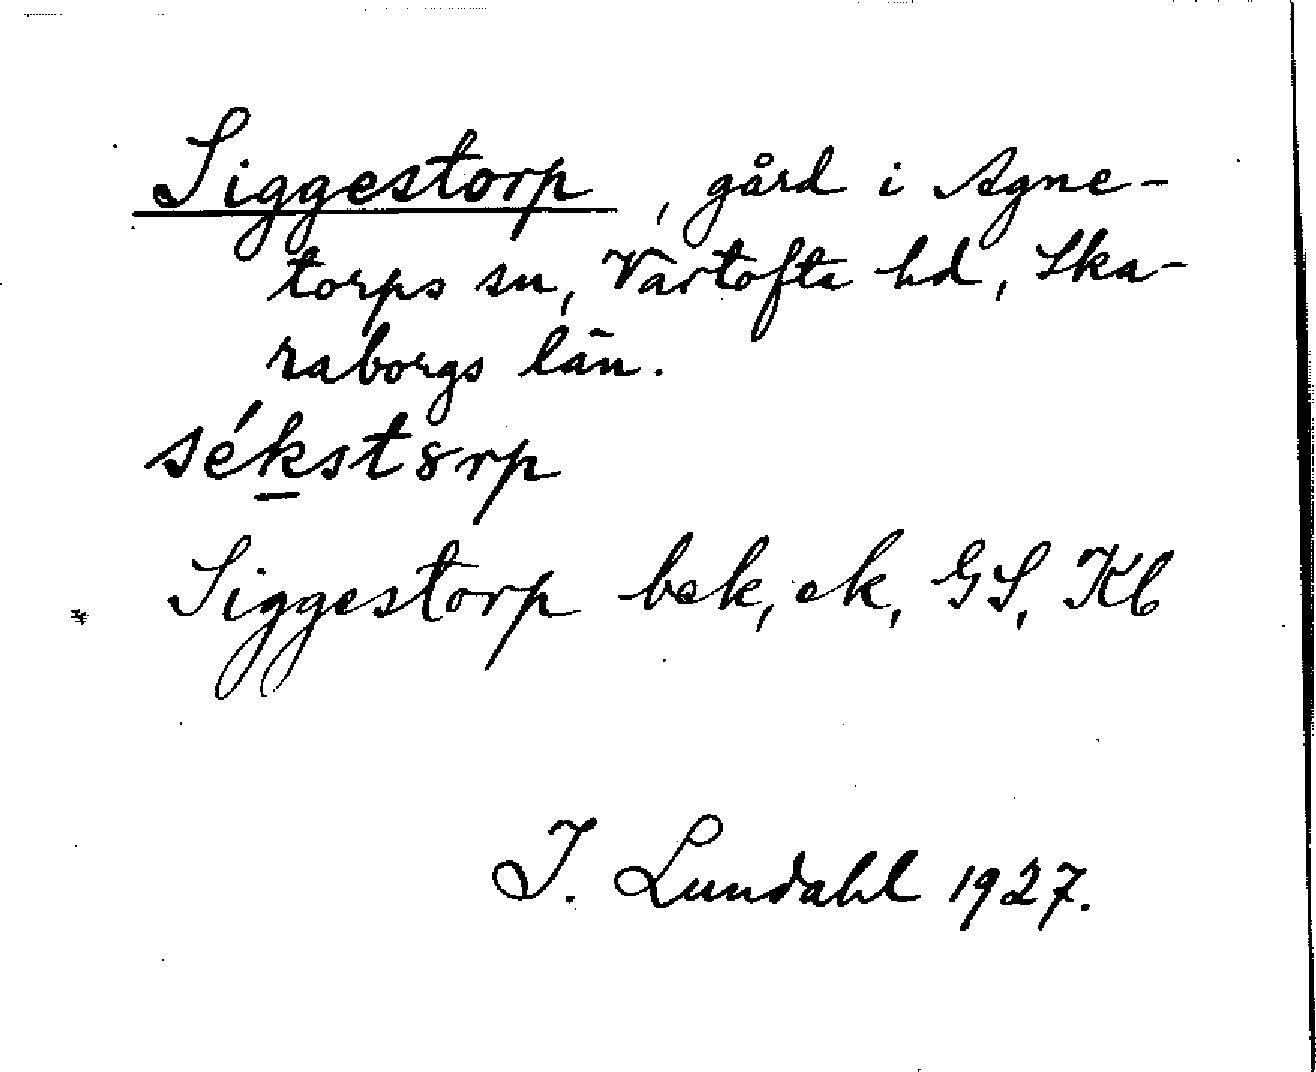 Siggestorp, gård i Agne-
torps sn, Vartofta hd, Ska-
raborgs län.
sékst8rp
Siggestorp bek, ek, GS, Kb
I. Lundahl 1927.